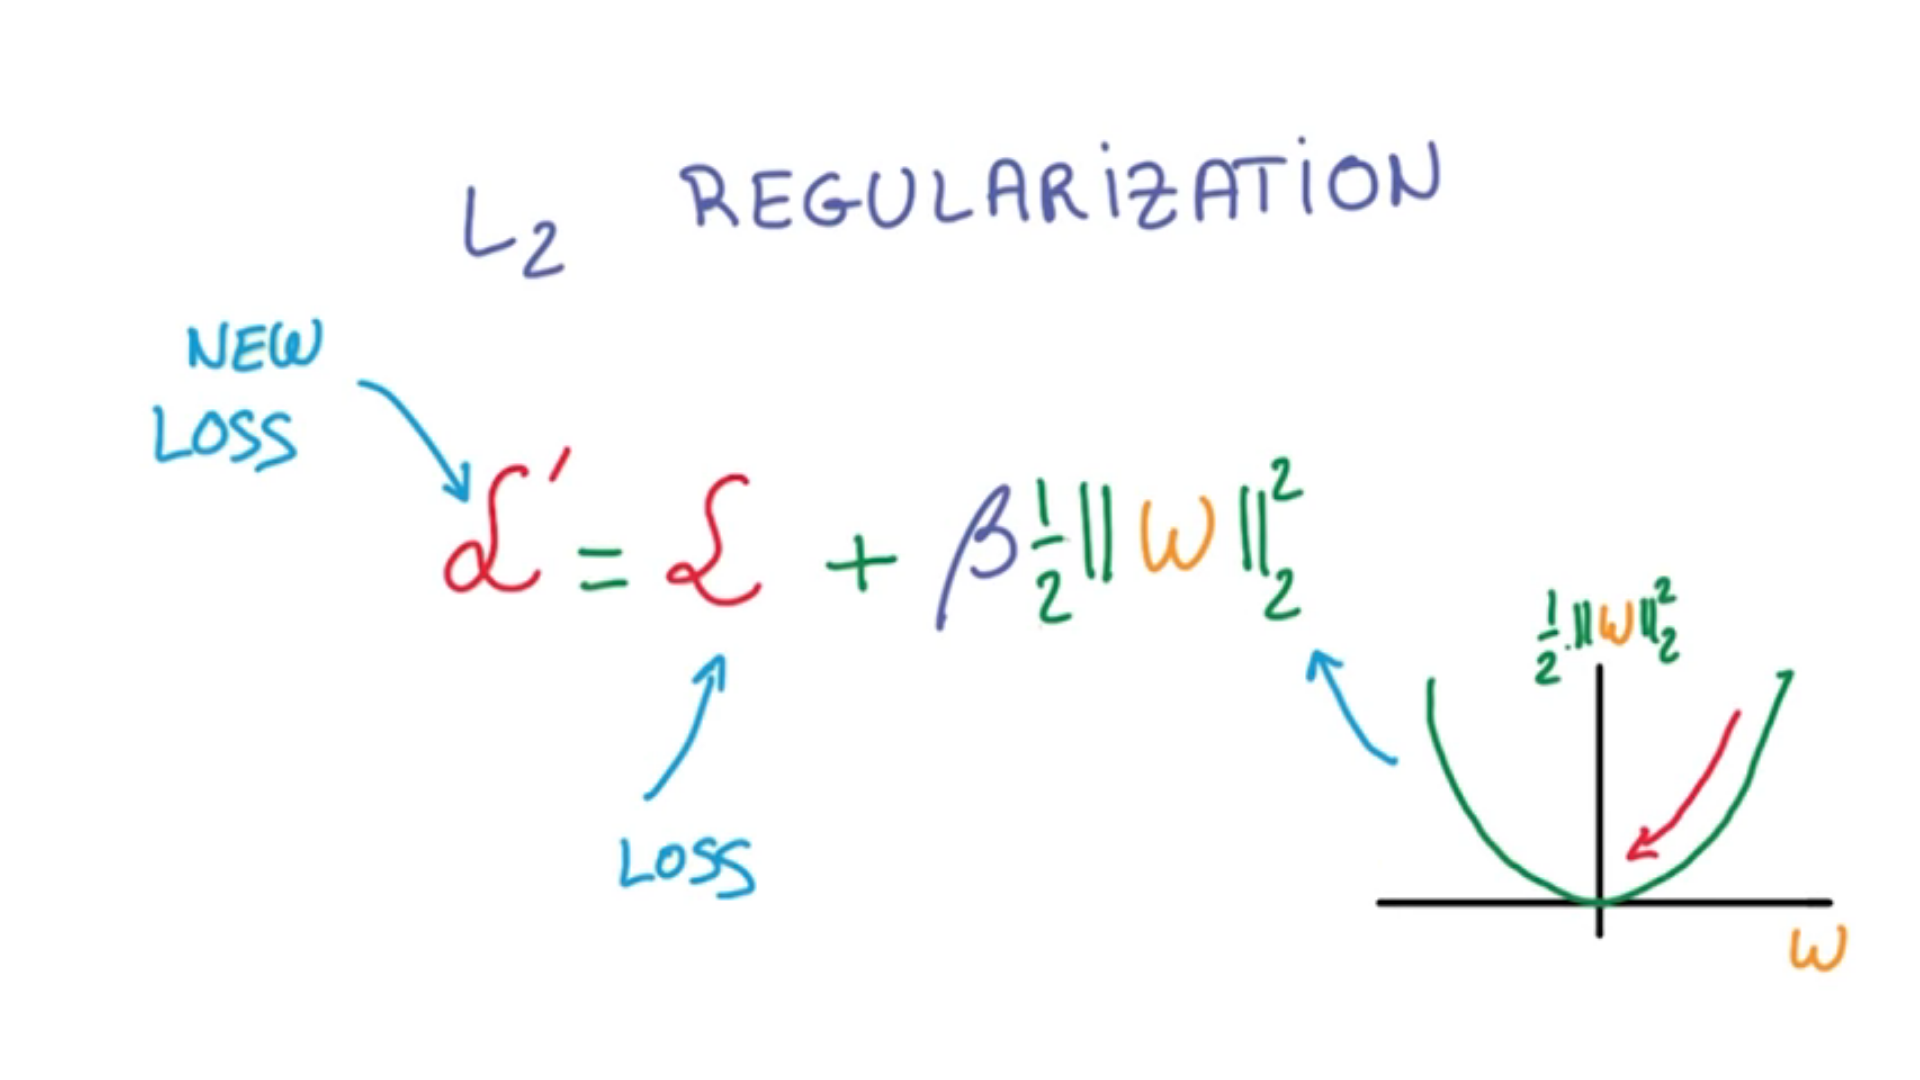 L₂ REGULARiZATiON
NEW
LOSS
ℒ' = ℒ + β ½ ||w||₂²
½ ||w||₂²
LOSS
w